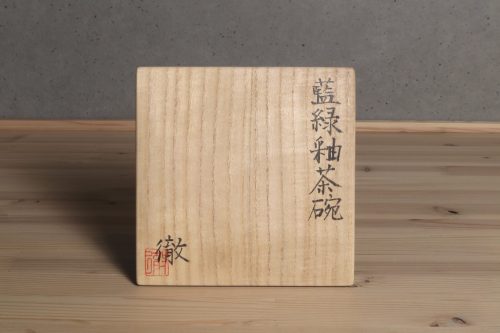 藍緑釉茶碗
徹